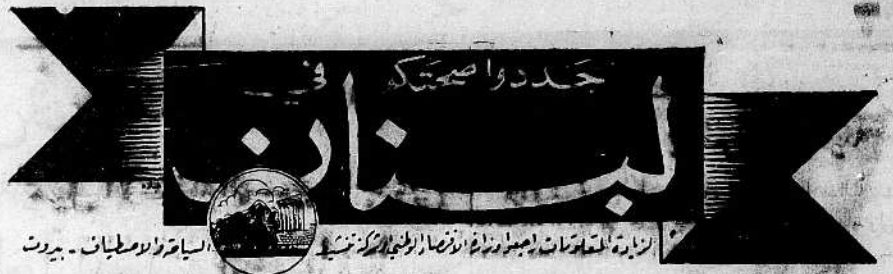 جددوا صحتكم في
لبنان
لزيادة المعلومات راجعوا وزارة الاقتصاد الوطني وشركة تنشيط السياحة والاصطياف - بيروت